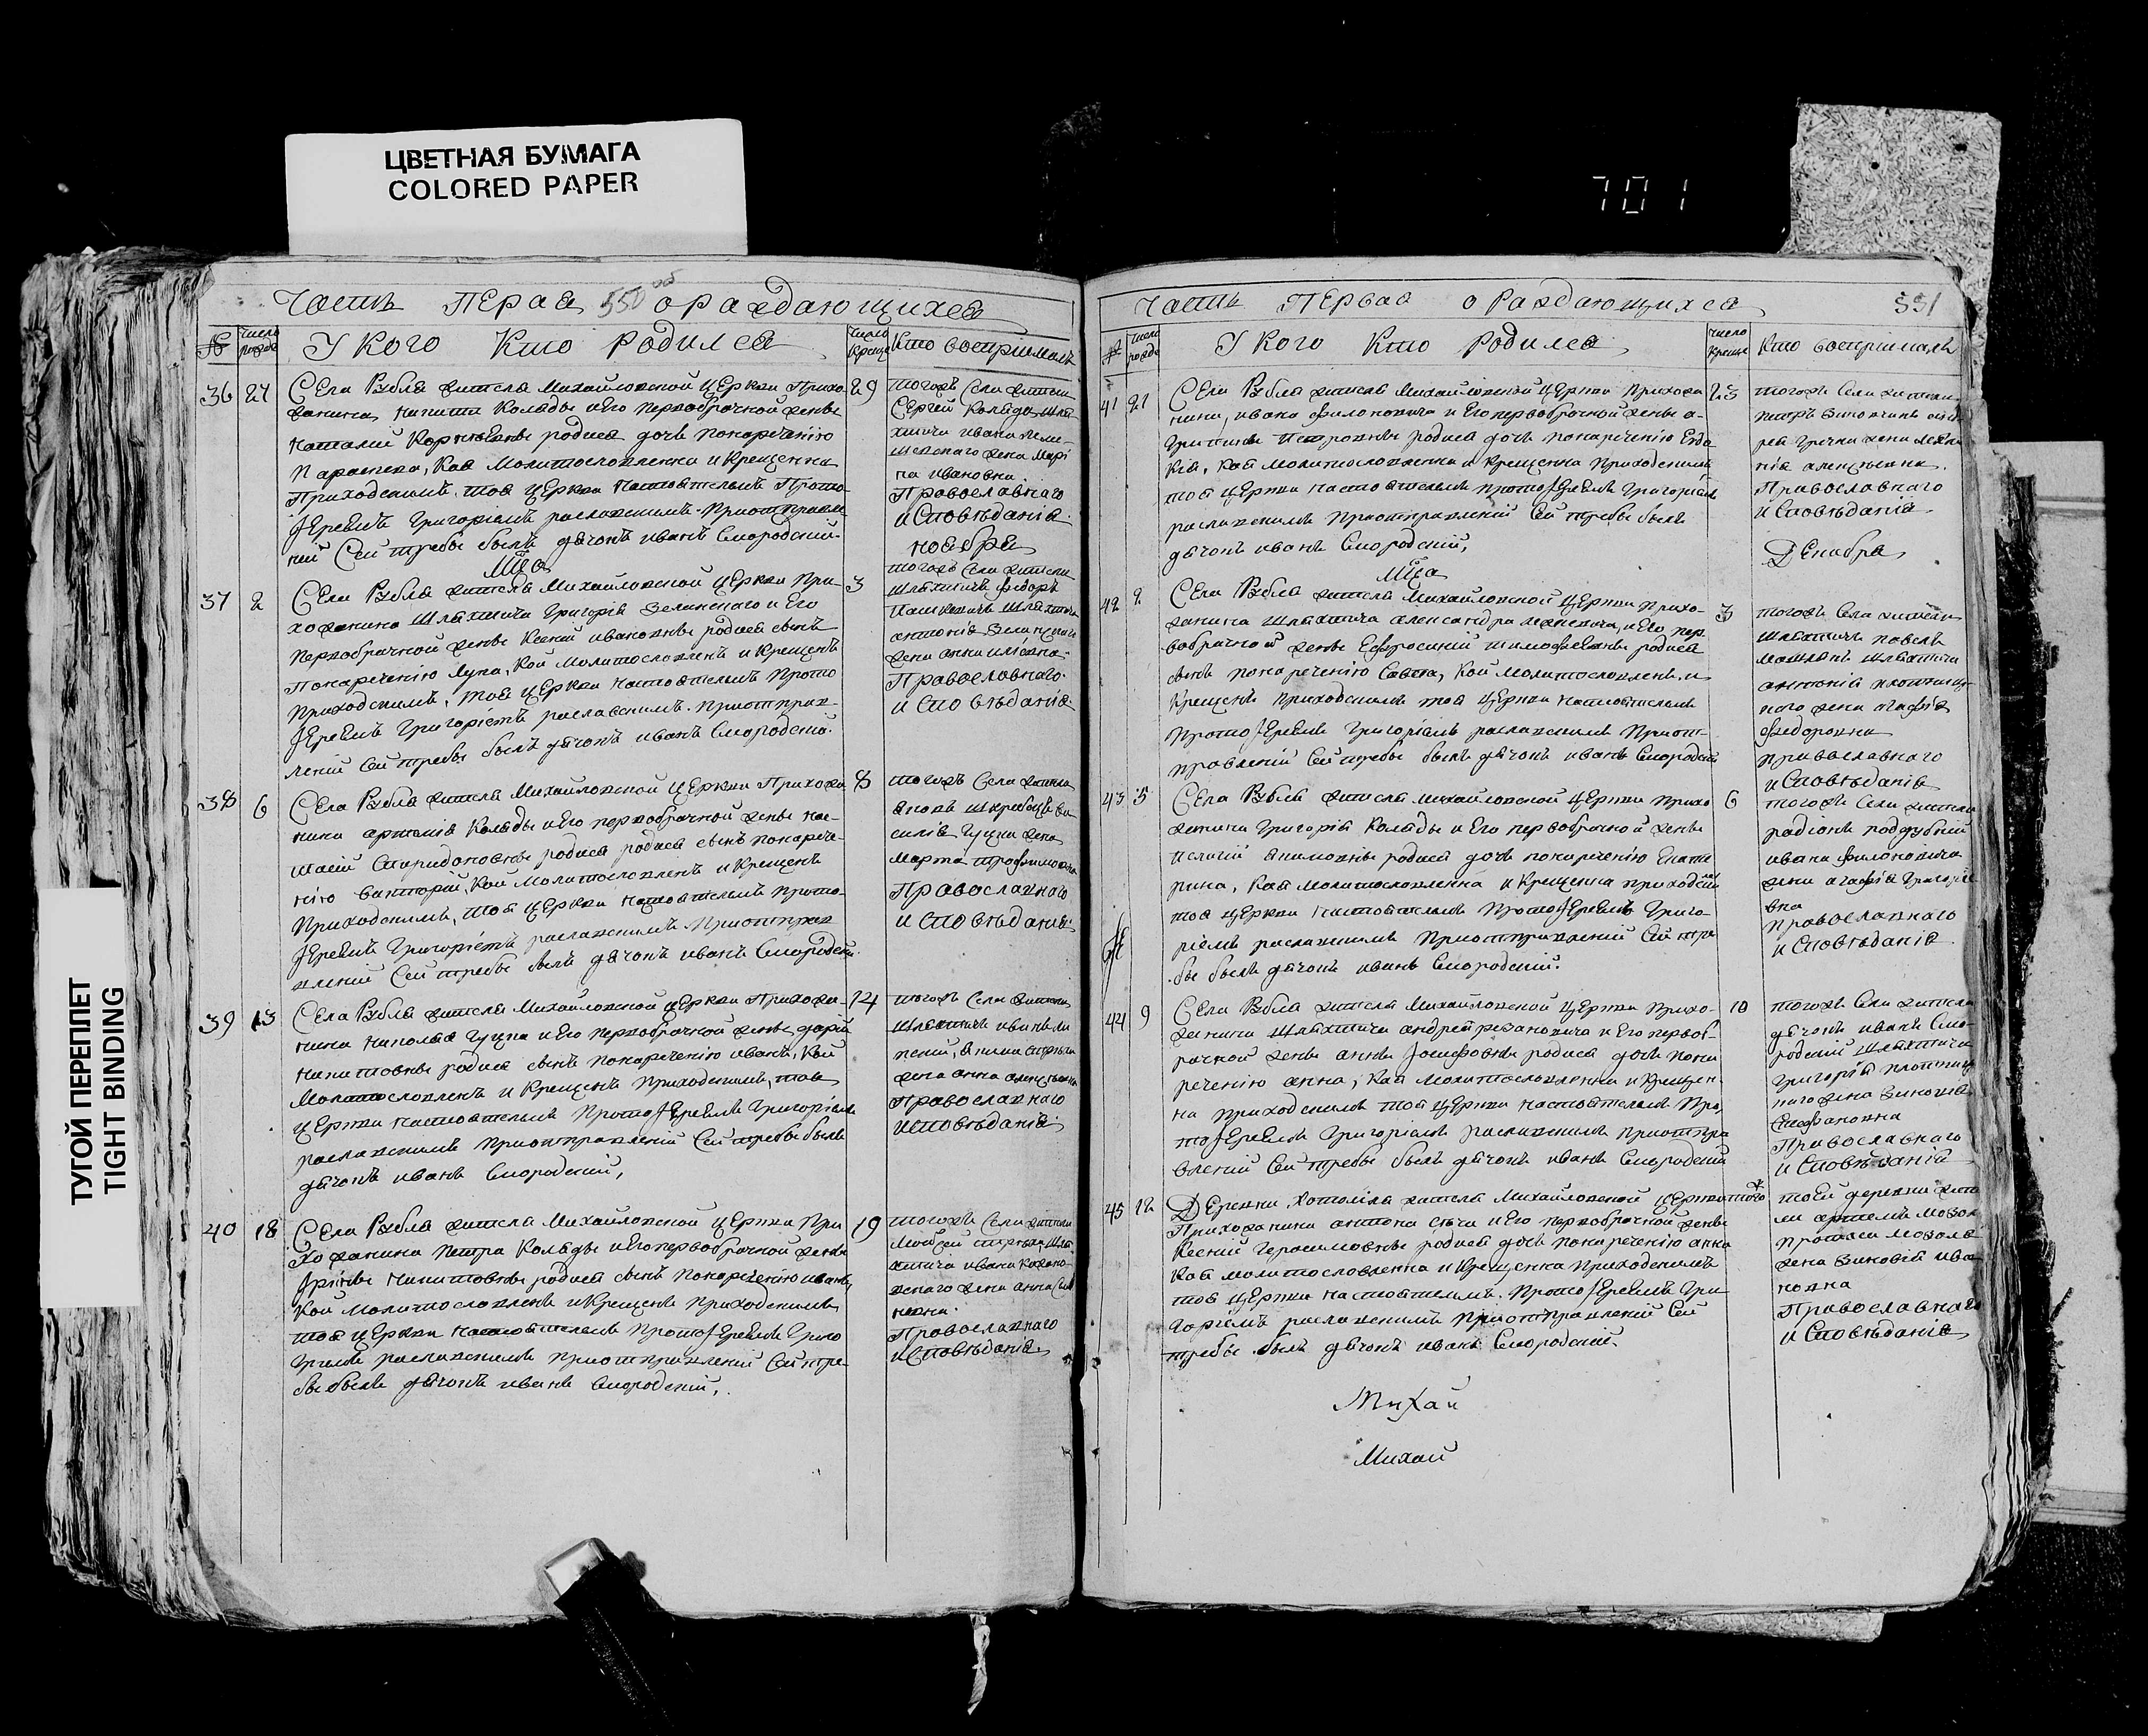 ЦВЕТНАЯ БУМАГА
COLORED PAPER
701
ТУГОЙ ПЕРЕПЛЕТ
TIGHT BINDING
Часть Перая 550 об о раждающихся
№ Число рожде У кого Кто Родился Число Креще Кто восприималъ
36 27 Села Рубля жителя Михайловской Церкви Прихо
жанина Никити Коляды и Его первобрачной жены
Наталии Корнѣевны родися дочь понаречению
Параскева, Кая Молитвословленна и Крещенна
Приходскимъ тоя Церкви Настоятелемъ Прото
Іереемъ Григоріемъ раславскимъ. Приотправле
ніи Сей требы былъ дячокъ иванъ Смородский.
29 тогожъ Села жители
Сергей Коляда, Шля
хтича ивана
жена Марі
на ивановна.
Православнаго
и Споведанія.
Мца ноября
37 2 Села Рубля жителя Михайловской Церкви При
хожанина Шляхтича Григорія Зелинскаго и Его
Первобрачной жены Ксении ивановны родися сынъ
Понаречению Лука, Кой Молитвословленъ и Крещенъ
Приходскимъ, тоя Церкви Настоятелемъ Прото
Іереемъ Григоріемъ раславскимъ. Приотправ
лении Сей требы былъ дячокъ иванъ Смородский.
3 тогожъ Села жители
Шляхтичъ Федоръ
Шляхтича
антонія Зелинскаго
жена анна
Православнаго.
и Споведанія.
38 6 Села Рубля жителя Михайловской Церкви Прихожа
нина артемія Коляды и Его первобрачной жены Нас
тасіи Спиридоновны родися родися сынъ понарече
нію Викторій, Кой Молитвословленъ и Крещенъ
Приходскимъ, тоя Церкви Настоятелемъ Прото
Іереемъ Григоріемъ раславскимъ Приотправ
лении Сей требы былъ дячокъ иванъ Смородский.
8 тогожъ Села жители
Яковъ Шкрабецъ Ва
силія Гуцки жена
Марта трофимовна
Православнаго
и Споведания.
39 13 Села Рубля жителя Михайловской Церкви Прихожа
нина Николая Гуцка и Его первобрачной жены дарии
Никитовны родися сынъ понаречению иванъ, Кой
Молитвословленъ и Крещенъ Приходскимъ, тоя
Церкви Настоятелемъ ПротоІереемъ Григоріемъ
раславскимъ Приотправлении Сей требы былъ
дячокъ иванъ Смородский,
14 тогожъ Села жители
Шляхтичъ иванъ
жена анна
Православнаго
исповеданія.
40 18 Села Рубля жителя Михайловской Церкви При
хожанина Петра Коляды и Его первобрачной жены
Ірины Никитовны родися сынъ понаречению иванъ,
Кой Молитвословленъ и Крещенъ Приходскимъ
тоя Церкви Настоятелемъ ПротоІереемъ Григо
риемъ раславскимъ приотправлении Сей тре
бы былъ дячокъ иванъ Смородский,
19 тогожъ Села жители
Мойсей Шля
хтича ивана
жена анна
Православнаго
и Споведания
Часть Первая о Раждающихся 551
№ Число рожде У кого Кто Родился число Креще Кто восприималъ
41 21 Села Рубля жителя Михайловской Церкви Прихожа
нина, ивана Филоновича и Его первобрачной жены а
гриппины Петровны родися дочь понаречению Евдо
кія, Кая Молитвословленна и Крещенна Приходскимъ
тоя Церкви Настоятелемъ ПротоІереемъ Григоріемъ
раславскимъ Приотправлении Сей требы былъ
дячокъ иванъ Смородский,
23 тогожъ Села жители
Петръ
Православнаго
и Споведанія
Мца Декабря
42 2 Села Рубля жителя Михайловской Церкви Прихо
жанина Шляхтича александра и Его пер
вобрачной жены Ефросинии тимофеевны родися
сынъ понаречению Савва, Кой Молитвословленъ и
Крещенъ Приходскимъ тоя Церкви Настоятелемъ
ПротоІереемъ Григоріемъ раславскимъ Приотп
равлении Сей требы былъ дячокъ иванъ Смородский
3 тогожъ Села жители
Шляхтичъ павелъ
Шляхтича
антония
жена агафія
Федоровна
православнаго
и Споведанія
43 5 Села Рубля жителя Михайловской Церкви Прихо
жанина Григорія Коляды и Его первобрачной жены
Пелагии Якимовны родися дочь понаречению Екате
рина, Кая Молитвословленна и Крещенна приходским
тоя Церкви Настоятелемъ ПротоІереемъ Григо
ріемъ раславскимъ Приотправлении Сей тре
бы былъ дячокъ иванъ Смородский.
6 тогожъ Села жители
радіонъ поддубный
ивана Филоновича
жена агафія Григорие
вна
православнаго
и Споведания
44 9 Села Рубля жителя Михайловской Церкви Прихо
жанина Шляхтича андрей резановича и Его первоб
рачной жены анны Іосифовны родися дочь пона
речению анна, Кая Молитвословленна и Крещен
на Приходскимъ тоя Церкви Настоятелемъ Про
тоІереемъ Григоріемъ раславскимъ приотпра
влении Сей требы былъ дячокъ иванъ Смородский
10 тогожъ Села жители
дячокъ иванъ Смо
родский Шляхтича
Григорія
жена Зиновия
Стефановна
Православнаго
и Споведания
45 12 Деревни Хотомля жителя Михайловской Церкви
Прихожанина антона сыча и Его первобрачной жены
Ксении Герасимовны родися дочь понаречению анна
Кая молитвословленна и Крещенна Приходскимъ
тоя Церкви настоятелемъ. ПротоІереемъ Гри
горіемъ раславскимъ Приотправлении Сей
требы былъ дячокъ иванъ Смородский.
тогож тоей деревни жите
ли артемъ
жена Зиновія ива
новна
Православнаго
и Споведания
Михай
Михай